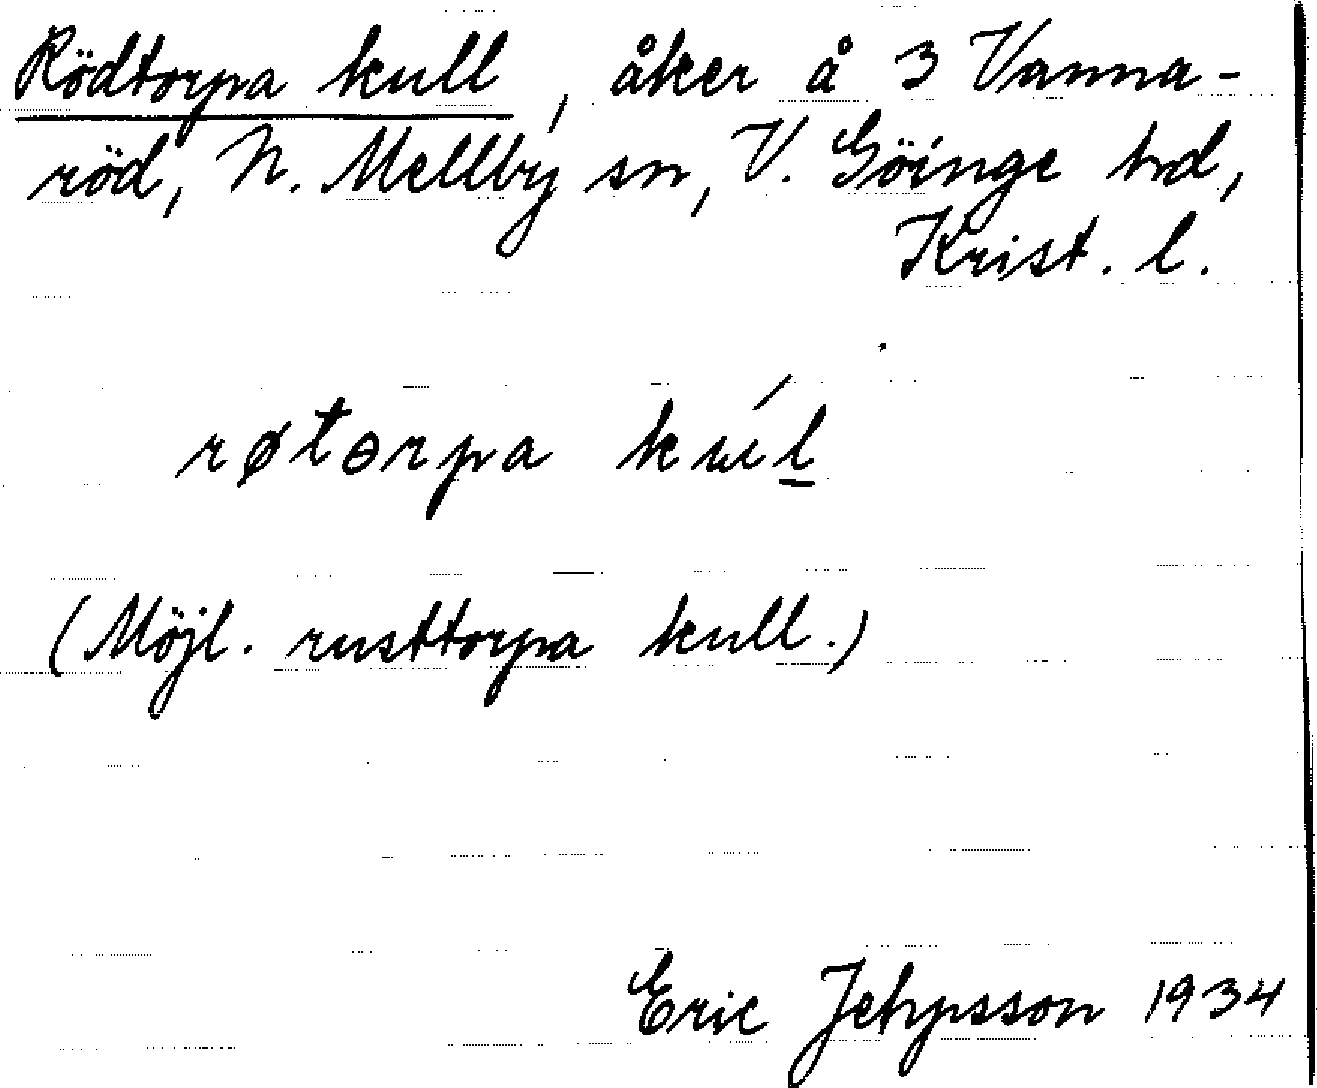 Rödtorpa kull, åker å 3 Vanna-
röd, N. Mellby sn, V. Göinge hd,
Krist. l.
røtɵrpa kúl
(Möjl. rusttorpa kull.)
Eric Jehpsson 1934